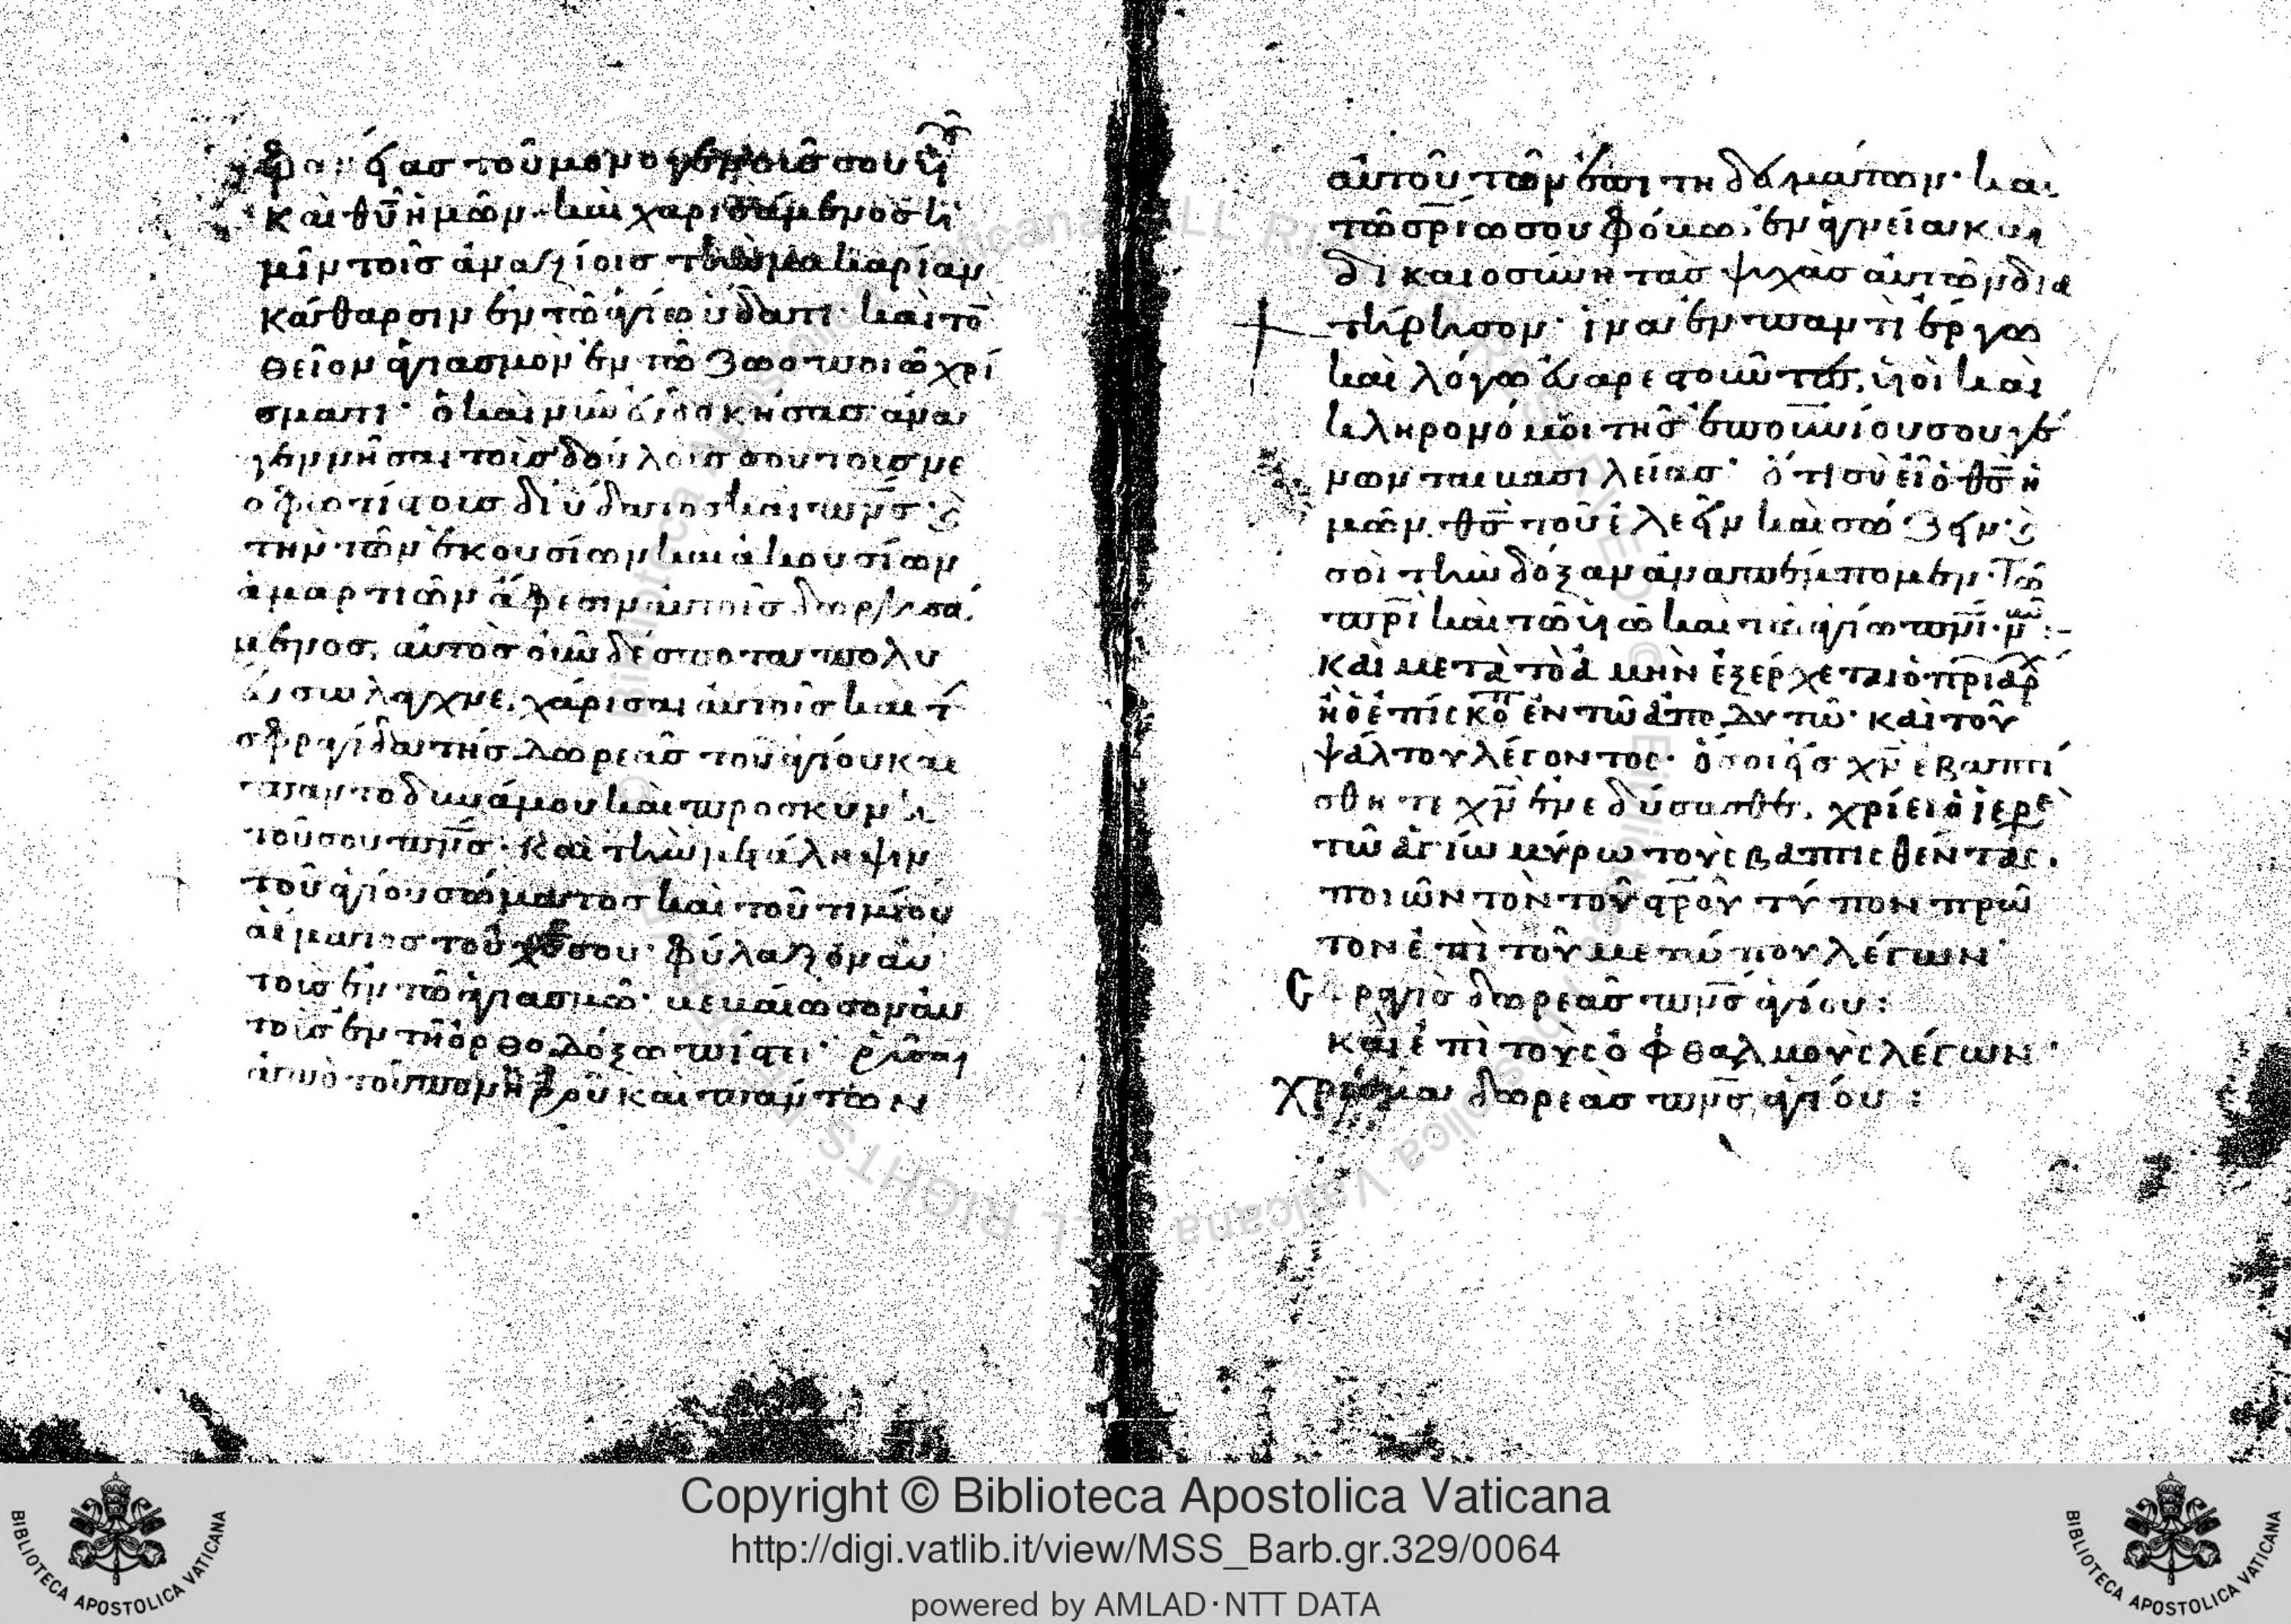 φανείας τοῦ μονογενοῦς σου υἱοῦ
καὶ θῡ ἡμῶν· καὶ χαρισάμενος ἡ
μῖν τοῖς ἀναξίοις τὴν μακαρίαν
κάθαρσιν ἐν τῶ ἁγίω ὕδατι· καὶ τὸν
θεῖον ἁγιασμὸν ἐν τῶ ζωοποιῶ χρί
σματι· ὁ καὶ νῦν εὐδοκήσας ἀνα
γεννῆσαι τοὺς δούλους σου τοὺς νε
οφωτίστους δι' ὕδατος καὶ πνς· καὶ
τὴν τῶν ἑκουσίων καὶ ἀκουσίων
ἁμαρτιῶν ἄφεσιν αὐτοῖς δωρησά
μενος, αὐτὸς οὖν δέσποτα πολυ
εύσπλαγχνε, χάρισαι αὐτοῖς καὶ τ
σφραγίδα τῆς δωρεᾶς τοῦ ἁγίου καὶ
παντοδυνάμου καὶ προσκυν
τοῦ σου πνς· καὶ τὴν μετάληψιν
τοῦ ἁγίου σώματος καὶ τοῦ τιμίου
αἵματος τοῦ χυ σου· φύλαξον αὐ
τοὺς ἐν τῶ ἁγιασμῶ· βεβαίωσον αὐ
τοὺς ἐν τῆ ὀρθοδόξω πίστει· ῥῦσαι
ἀπὸ τοῦ πονηροῦ καὶ πάντων
αὐτοῦ τῶν ἐπιτηδευμάτων· καὶ
τῶ σρίω σου φόβω, ἐν ἁγνείᾳ καὶ
δικαιοσύνη τὰς ψυχὰς αὐτῶν δια
τήρησον· ἵνα ἐν παντὶ ἔργω
καὶ λόγω εὐαρεστοῦντες, υἱοὶ καὶ
κληρονόμοι τῆς ἐπουνίου σου γέ
νωνται βασιλείας· ὅτι σὺ εἶ ὁ θς ἡ
μῶν. θς τοῦ ἐλεεῖν καὶ σώζειν· καὶ
σοὶ τὴν δόξαν ἀναπέμπομεν· Τῶ
πρὶ καὶ τῶ υἱῶ καὶ τῶ ἁγίω πνι· νῦν :-
καὶ μετὰ τὸ ἀμὴν ἐξέρχεται ὁ πριάρχ
ἢ ὁ ἐπίσκοπ ἐν τῶ ἀπολυτῶ· καὶ τοῦ
ψάλτου λέγοντος· ὅσοι εἰς χν ἐβαπτί
σθητε χν ἐνεδύσασθε. χρίει ὁ ἱερεὺ
τῶ ἁγίω μύρω τοὺς βαπτισθέντας.
ποιῶν τὸν τοῦ στροῦ τύπον πρῶ
τον ἐπὶ τοῦ μετώπου λέγων·
Cφραγὶς δωρεᾶς πνς ἁγίου :
καὶ ἐπὶ τοὺς ὀφθαλμοὺς λέγων·
χρίσμα δωρεᾶς πνς ἁγίου :
Copyright © Biblioteca Apostolica Vaticana
http://digi.vatlib.it/view/MSS_Barb.gr.329/0064
powered by AMLAD·NTT DATA
BIBLIOTECA APOSTOLICA VATICANA
BIBLIOTECA APOSTOLICA VATICANA